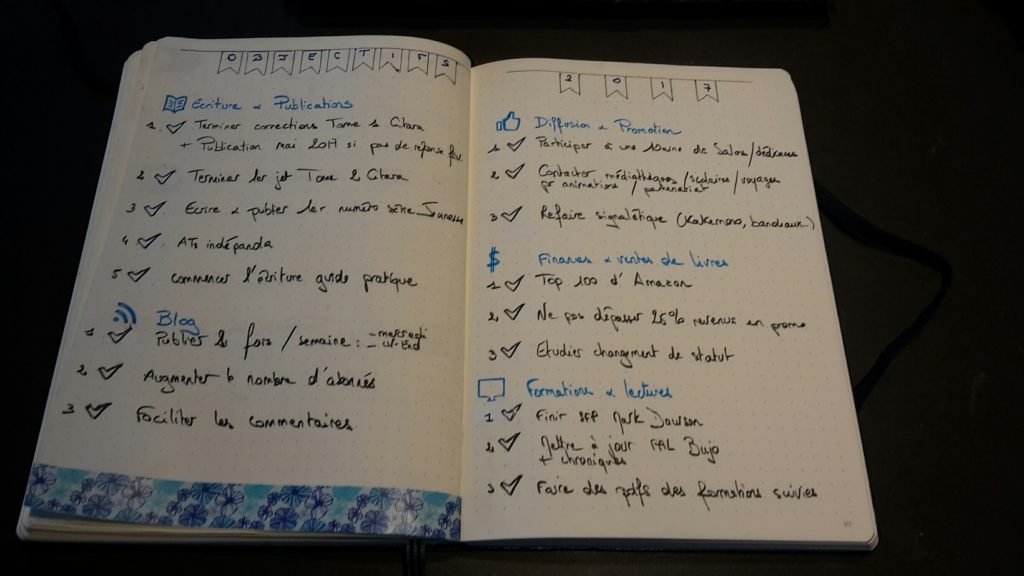 OBJECTIFS
Ecriture & Publications
1. Terminer corrections Tome 1 Citara
+ Publication mai 2017 si pas de réponse fav.
2. Terminer 1er jet Tome 2 Citara
3 Ecrire & publier 1er numéro série Jeunesse
4 ATs indépanda
5. commencer l'écriture guide pratique
Blog
1 Publier 2 fois / semaine : - mercredi
- W-End
2. Augmenter le nombre d'abonnés
3 Faciliter les commentaires
2017
Diffusion & Promotion
1. Participer à une 10aine de Salons/dédicaces
2. Contacter médiathèques / scolaires / voyages
pr animations / partenariat
3 Refaire signalétique (Kakemono, bandeaux...)
$ Finances & ventes de livres
1. Top 100 d'Amazon
2. Ne pas dépasser 25% revenus en promo
3 Etudier changement de statut
Formations & lectures
1 Finir SPF Mark Dawson
2. Mettre à jour PAL Bujo
+ chroniques
3 Faire des pdfs des formations suivies
97